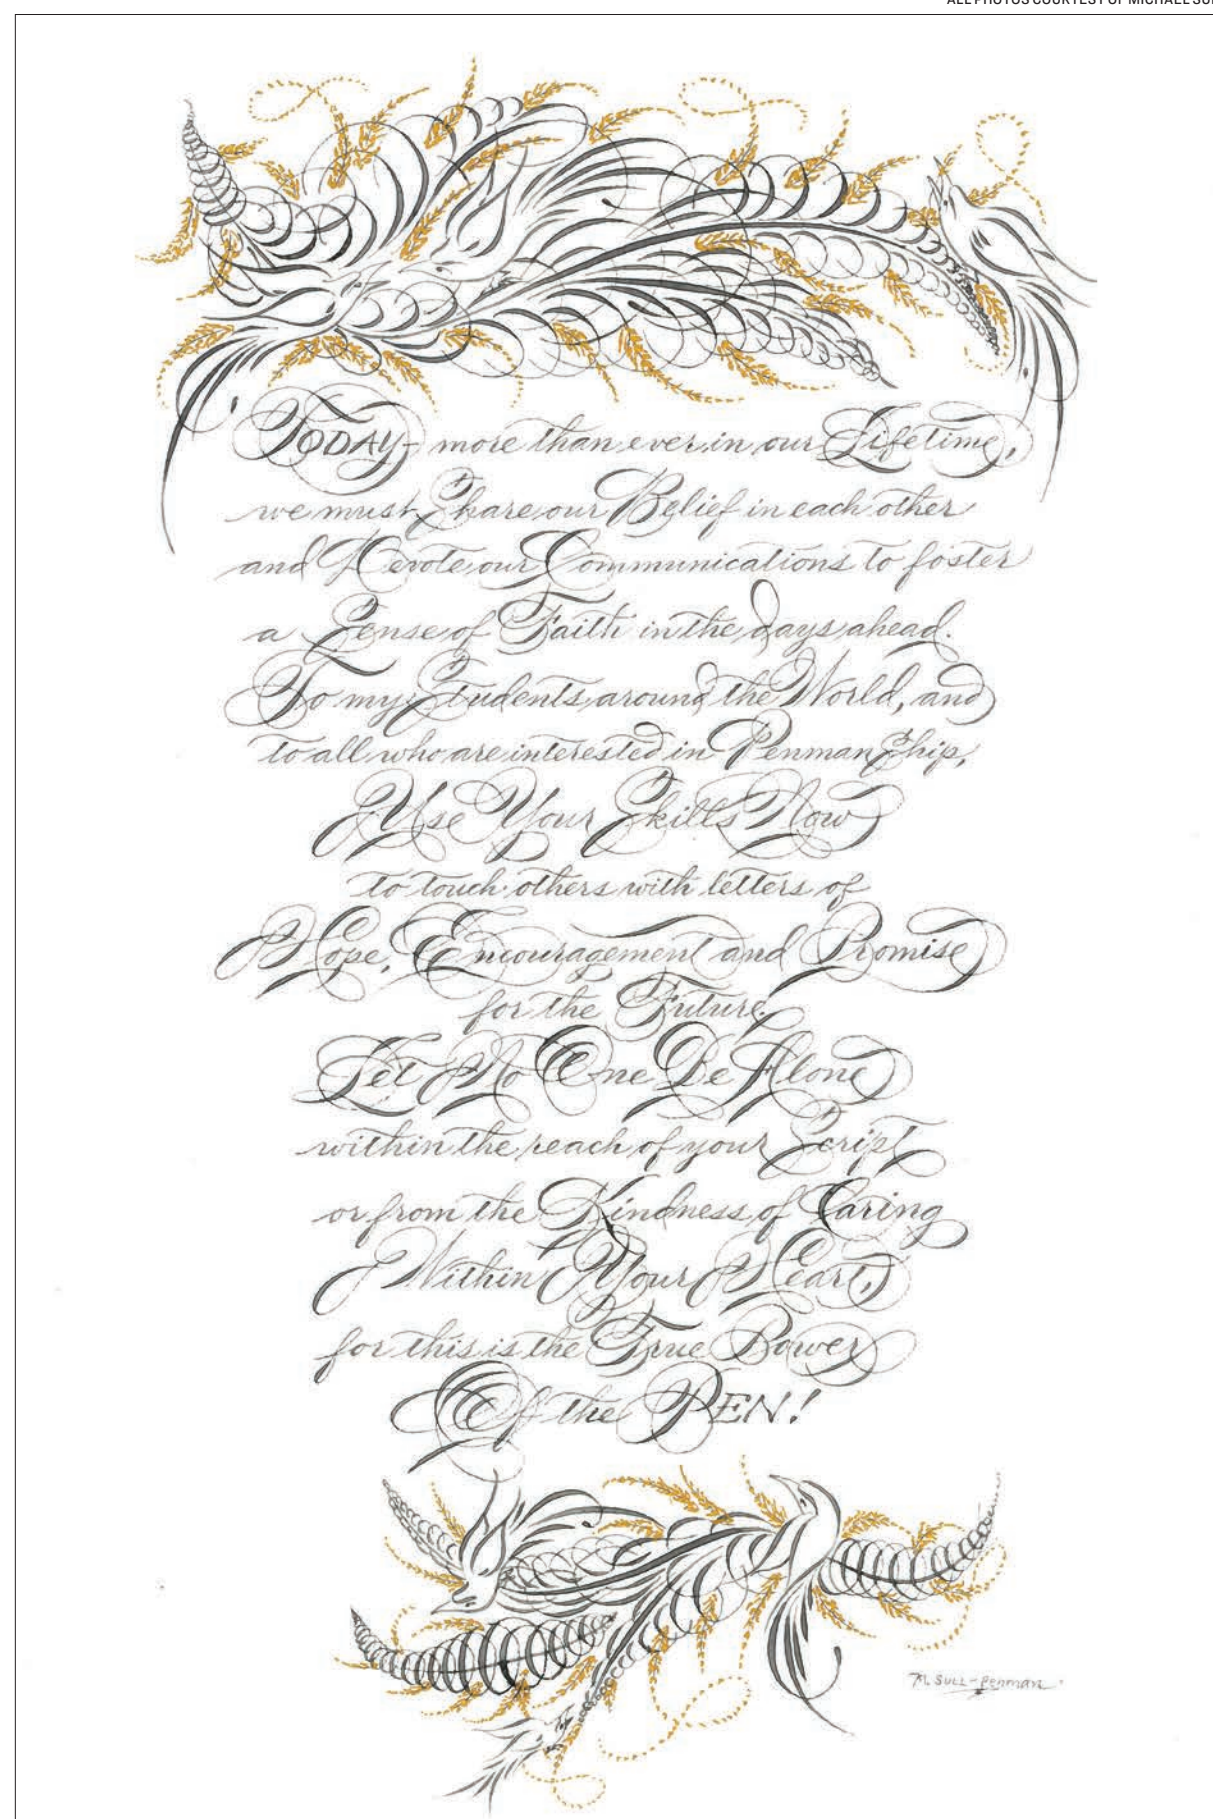 ALL PHOTOS COURTESY OF MICHAEL
TODAY - more than ever in our Lifetime,
we must Share our Belief in each other
and Devote our Communications to foster
a Sense of Faith in the days ahead.
To my Students around the World, and
to all who are interested in PenmanShip,
Use Your Skills Now
to touch others with letters of
Hope, Encouragement and Promise
for the Future.
Let No One Be Alone
within the reach of your Script
or from the Kindness of Caring
Within Your Heart,
for this is the True Power
Of the PEN!
M. SULL - Penman